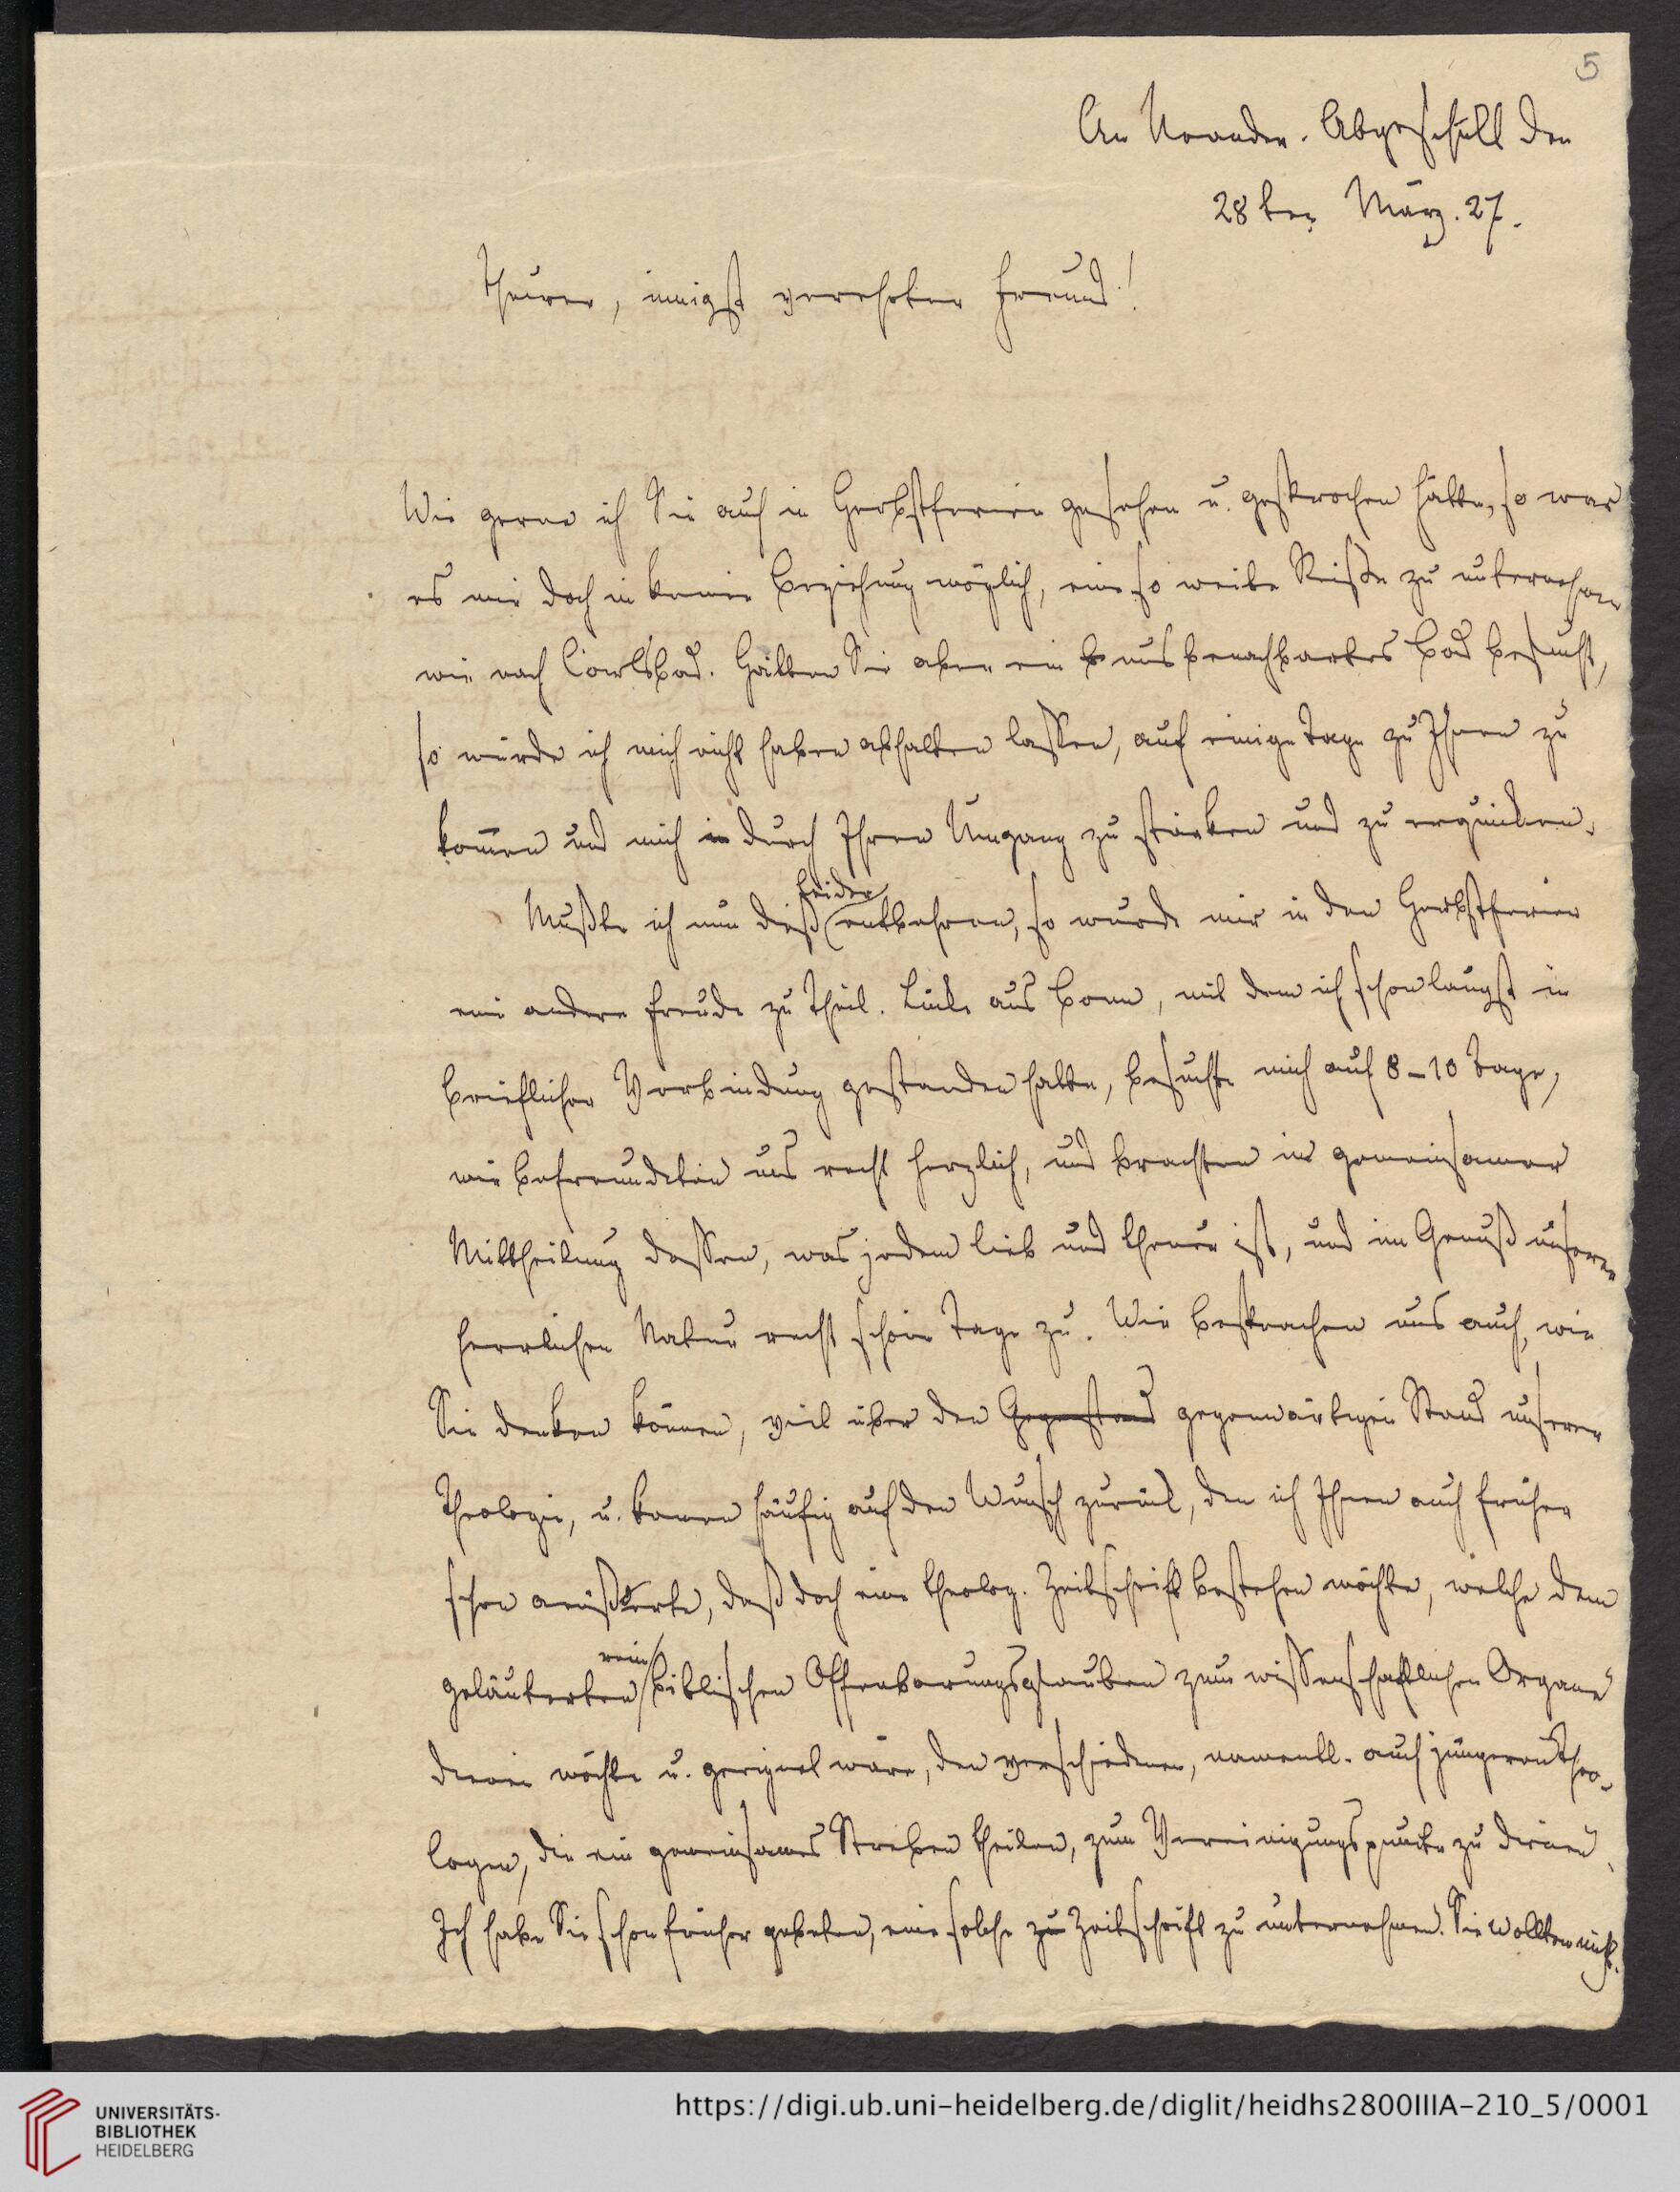 5
An Neander. Abgeschickt den
28ten März. 27.
Theurer, innigst verehrter Freund!
Wie gerne ich Sie auch in Herbstferien gesehen u. gesprochen hätte, so war
es mir doch in keiner Beziehung möglich, eine so weite Reise zu unternehmen
wie nach Carlsbad. Hätten Sie aber ein uns benachbartes Bad besucht,
so würde ich mich nicht haben abhalten lassen, auf einige Tage zu Ihnen zu
kom̄en und mich in durch Ihren Umgang zu stärken und zu erquicken.
leider
Mußte ich nun dieß entbehren, so wurde mir in den Herbstferien
eine andere Freude zu Theil. Lücke aus Bonn, mit dem ich schon längst in
brieflicher Verbindung gestanden hatte, besuchte mich auf 8-10 Tage,
wir befreundeten uns recht herzlich, und brachten in gemeinsamer
Mittheilung dessen, was jedem lieb und theuer ist, und im Genuß unserer
herrlichen Natur recht schöne Tage zu. Wir besprachen uns auch, wie
Sie denken können, viel über den Gegenstand gegenwärtigen Stand unserer
Theologie, u. kamen häufig auf den Wunsch zurück, den ich Ihnen auch früher
schon äußerte, daß doch eine theolog. Zeitschrift bestehen möchte, welche dem
rein
geläuterten biblischen Offenbarungsglauben zum wissenschaftlichen Organe
dienen möchte u. geeignet wäre, den verschiedenen, namentl. auch jüngeren Theo-
logen, die ein gemeinsames Streben theilen, zum Vereinigungspuncte zu dienen.
Ich habe Sie schon früher gebeten, eine solche zu Zeitschrift zu unternehmen. Sie wollten nicht.
UNIVERSITÄTS-
BIBLIOTHEK
HEIDELBERG
https://digi.ub.uni-heidelberg.de/diglit/heidhs2800IIIA-210_5/0001